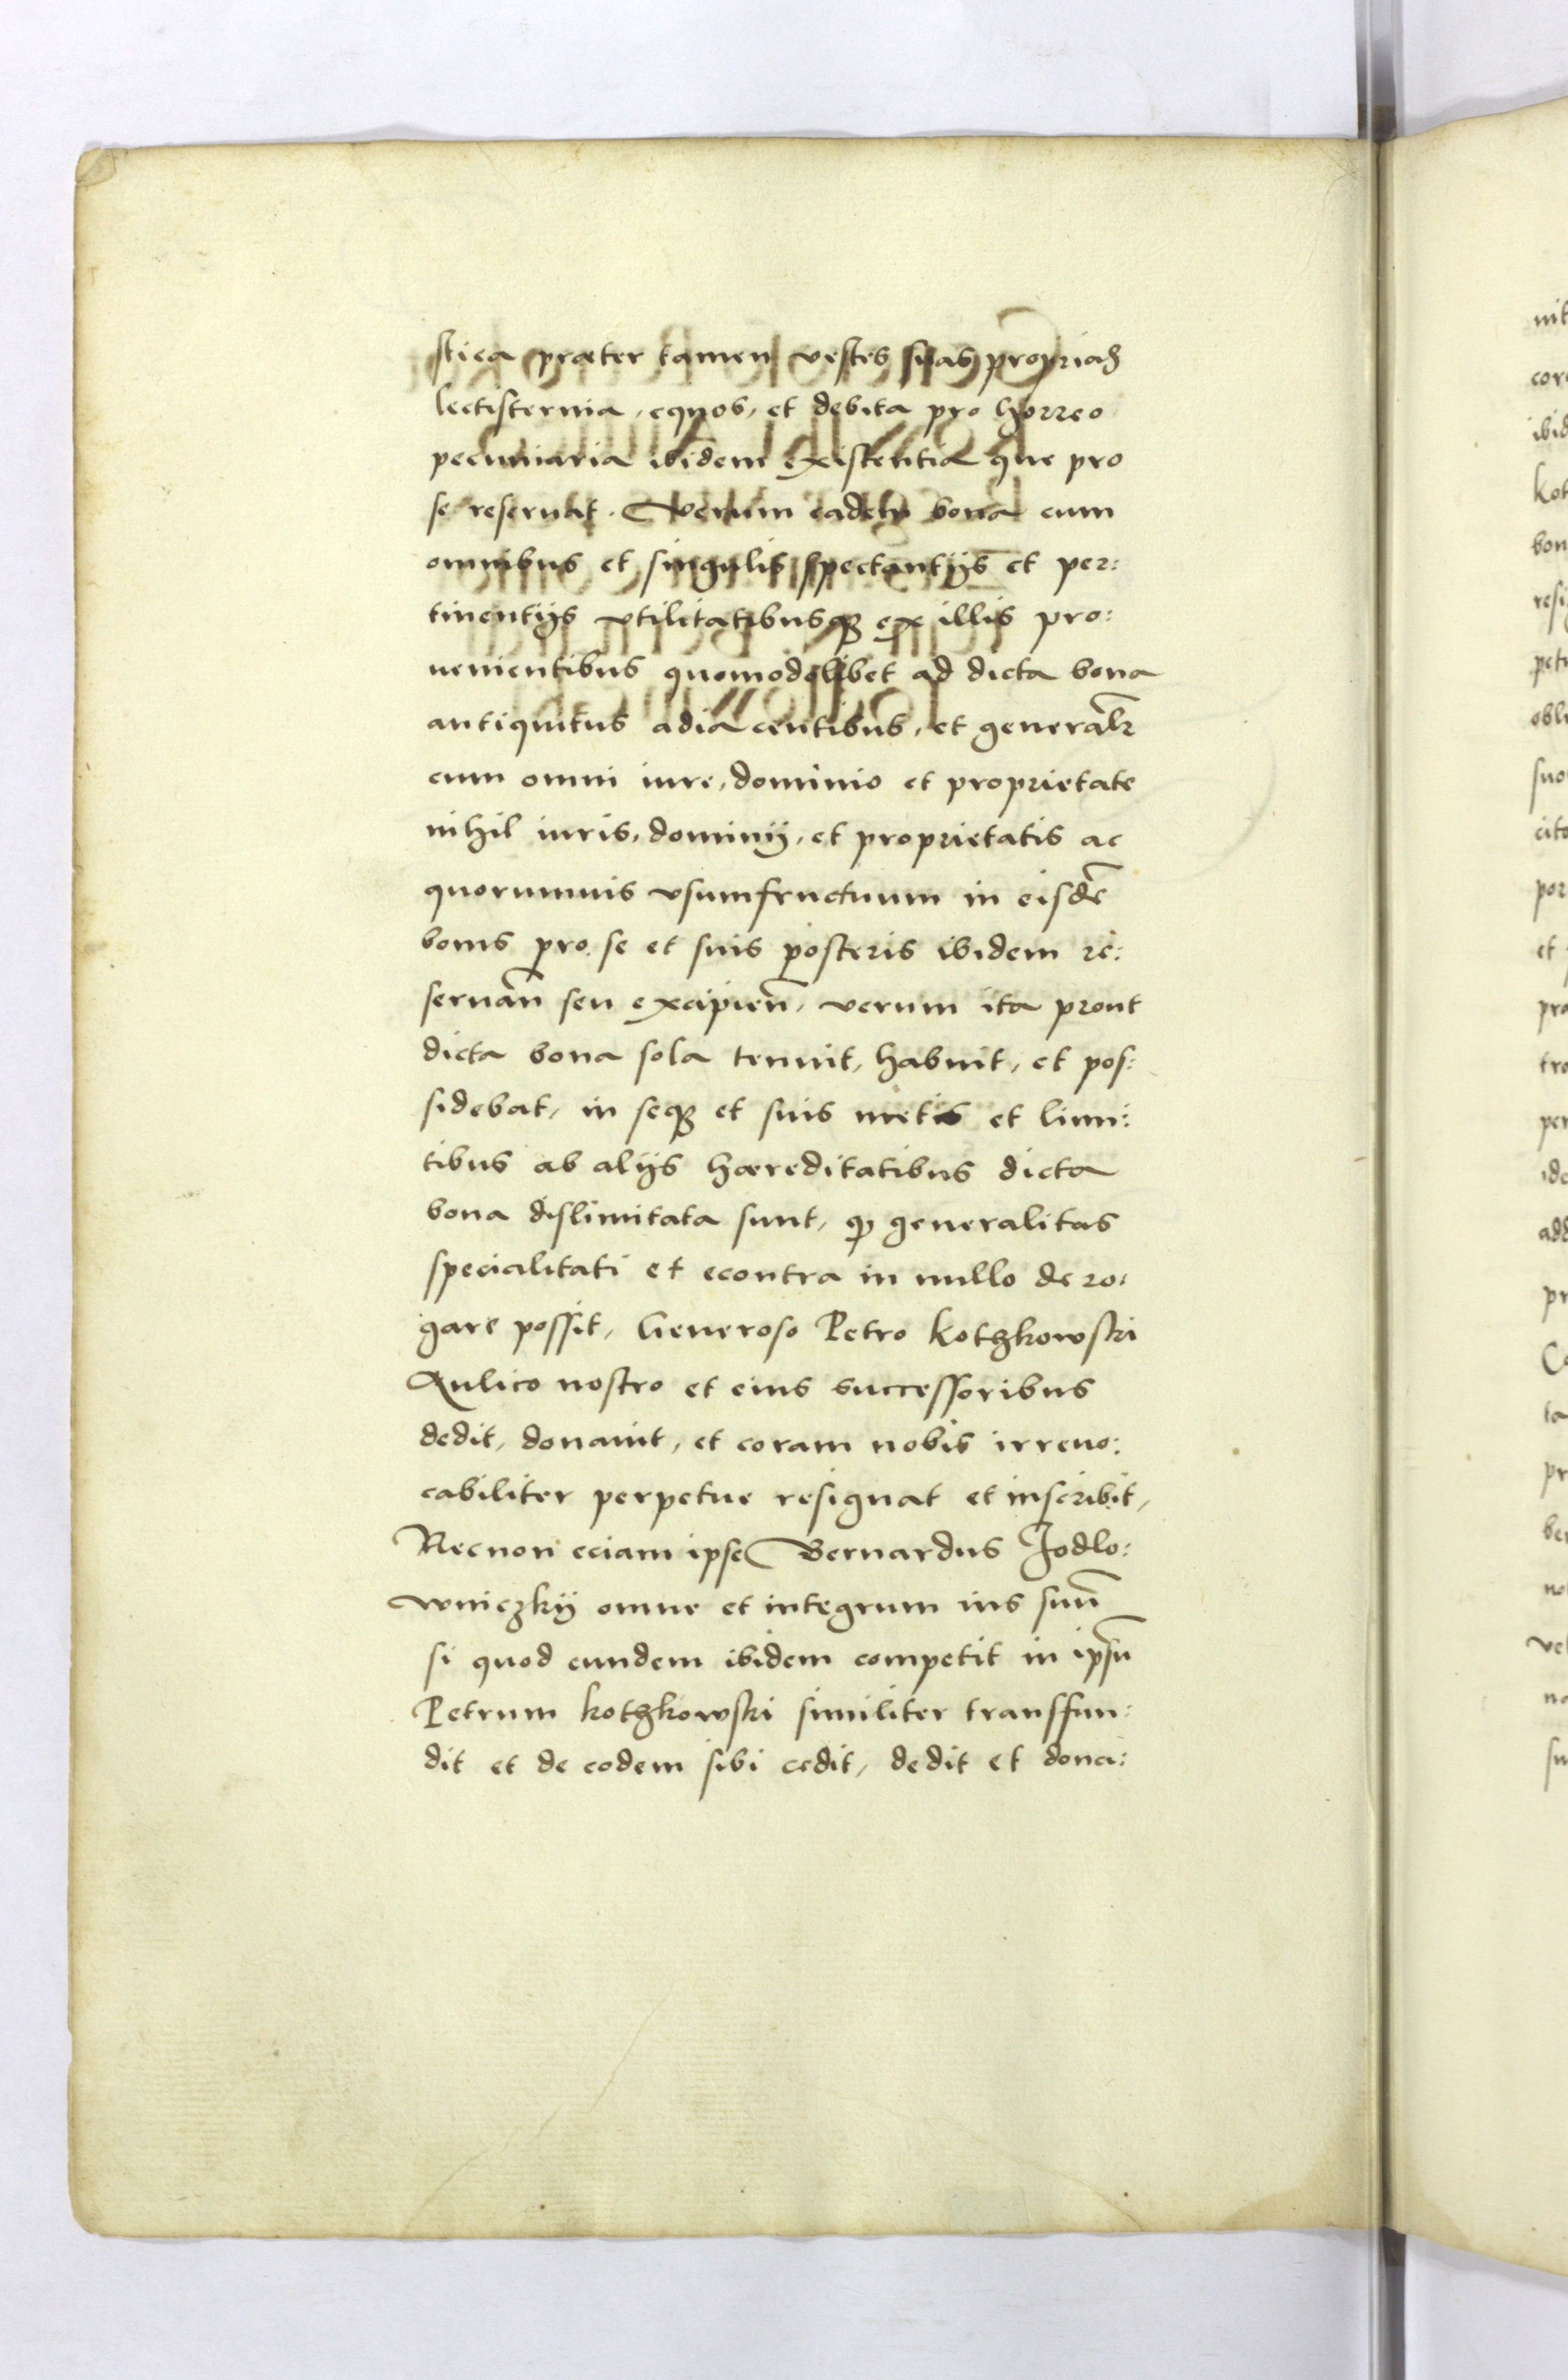 stica praeter tamen vestes suas proprias
lectisternia, equos, et debita pro horreo
pecuniaria ibidem existentia que pro
se reseruat. Verum eadem bona cum
omnibus et singulis spectantijs et per:
tinentijs vtilitatibusqꝫ ex illis pro:
uenientibus quomodolibet ad dicta bona
antiquitus adiacentibus, et generalr
cum omni iure, dominio et proprietate
nihil iuris, dominij, et proprietatis ac
quorumuis vsumfructuum in eisdē
bonis pro se et suis posteris ibidem re:
seruan̄ seu excipien̄, verum ita prout
dicta bona sola tenuit, habuit, et pos:
sidebat, in seqꝫ et suis metis et limi:
tibus ab alijs haereditatibus dicta
bona dislimitata sunt, qꝫ generalitas
specialitati et econtra in nullo dero:
gare possit, Generoso Petro Kotzkowski
Aulico nostro et eius successoribus
dedit, donauit, et coram nobis irreuo:
cabiliter perpetue resignat et inscribit,
Necnon eciam ipse Bernardus Jodlo:
wniczkij omne et integrum ius suū
si quod eundem ibidem competit in ipsū
Petrum Kotzkowski similiter transfun:
dit et de eodem sibi cedit, dedit et dona: